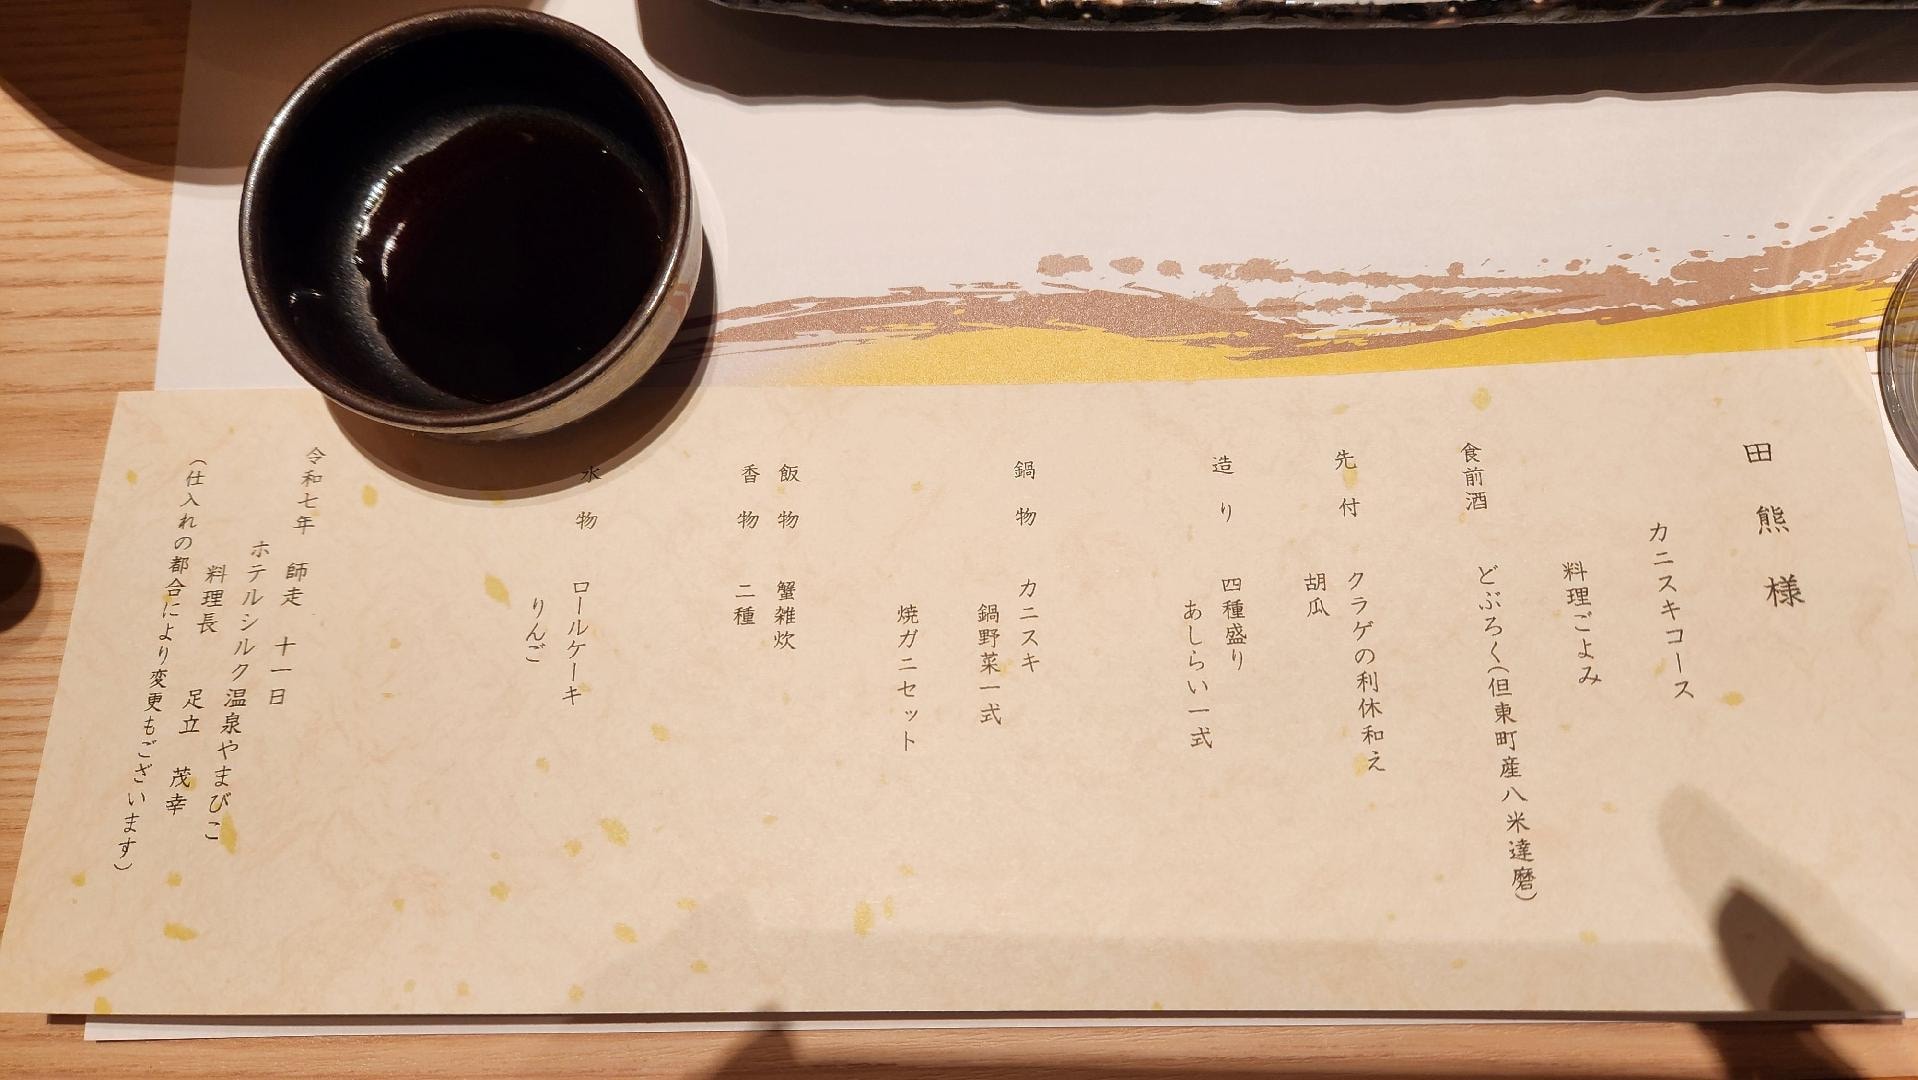 田熊様
カニスキコース
料理ごよみ
食前酒 どぶろく(但東町産八米達磨)
先付 クラゲの利休和え
胡瓜
造り 四種盛り
あしらい一式
鍋物 カニスキ
鍋野菜一式
焼ガニセット
飯物 蟹雑炊
香物 二種
水物 ロールケーキ
りんご
令和七年 師走 十一日
ホテルシルク温泉やまびこ
料理長 足立 茂幸
(仕入れの都合により変更もございます)